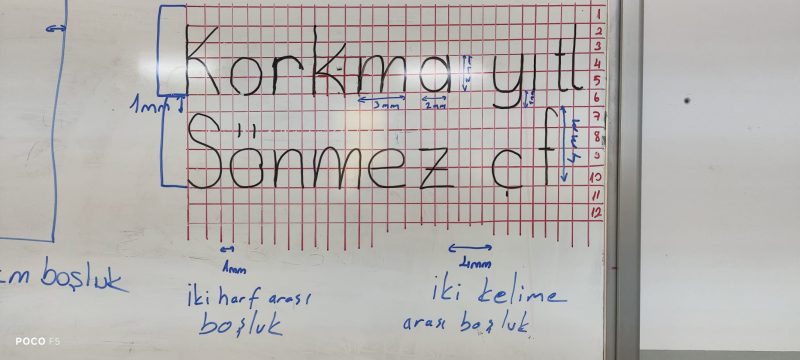 1
2
3
4
5
6
7
8
9
10
11
12
Korkma yıtl
1mm
3mm
2mm
Sönmez çf
4mm
1mm
4mm
boşluk
iki harf arası
boşluk
iki kelime
arası boşluk
POCO F5